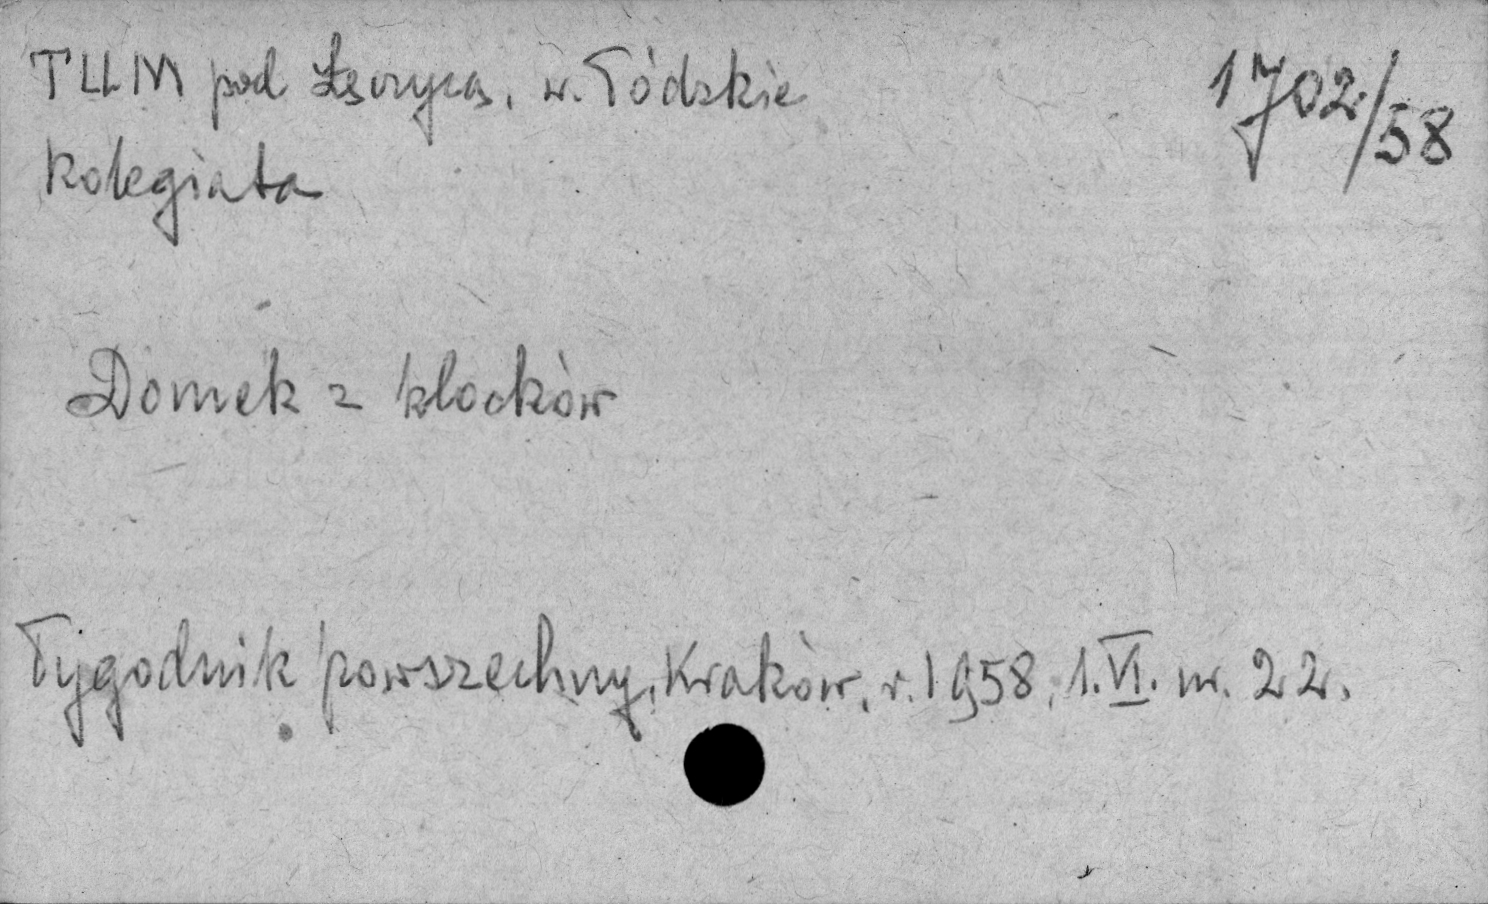 TUM pod Łęczycą, w. Łódzkie
1702/58
Kolegiata
Domek z klocków
Tygodnik powszechny, Kraków, r. 1958, 1.VI. nr. 22.